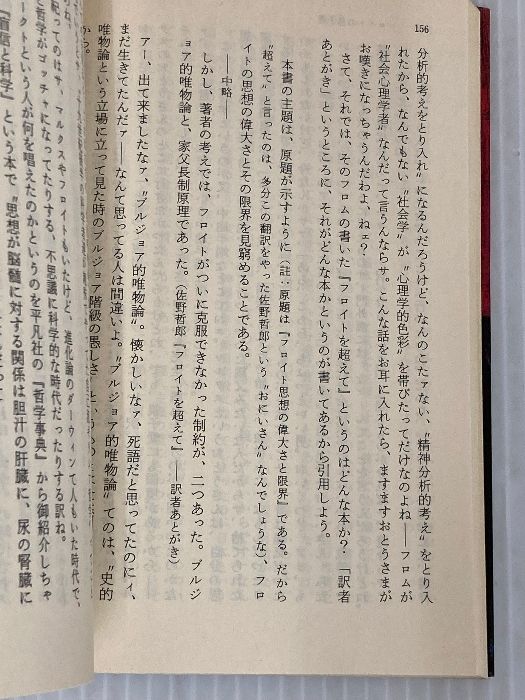 156
分析的考えをとり入れ〟になるんだろうけど、なんのこたァない、〝精神分析的考え〟をとり入
れたから、なんでもない〝社会学〟が〝心理学的色彩〟を帯びたってだけなのよね――フロムが
〝社会心理学者〟なんだって言うんならサ。こんな話をお耳に入れたら、ますますおとうさまが
お嘆きになっちゃうんだわよ、ねェ?
さて、それでは、そのフロムの書いた『フロイトを超えて』というのはどんな本か?「訳者
あとがき」というところに、それがどんな本かというのが書いてあるから引用しよう。
本書の主題は、原題が示すように(註:原題は『フロイト思想の偉大さと限界』である。だから
〝超えて〟と言ったのは、多分この翻訳をやった佐野哲郎という〝おにいさん〟なんでしょうな)、フロ
イトの思想の偉大さとその限界を見窮めることである。
――中略――
しかし、著者の考えでは、フロイトがついに克服できなかった制約が、二つあった。ブルジ
ョア的唯物論と、家父長制原理であった。(佐野哲郎『フロイトを超えて』――訳者あとがき)
アー、出て来ましたなァ、〝ブルジョア的唯物論〟。懐かしいなァ、死語だと思ってたのにィ、
まだ生きてたんだァ――なんて思ってる人は間違いよ。〝ブルジョア的唯物論〟てのは、〝史的
唯物論という立場に立って見た時のブルジョア階級の愚しさ〟
紀ってのはサ、マルクスやフロイトもいたけど、進化論のダーウィンて人もいた時代で、
と哲学がゴッチャになってたりする、不思議に科学的な時代だったりする訳ね。
ークトという人が何を唱えたのかというのを平凡社の『哲学事典』から御紹介しちゃ
『盲信と科学』という本で〝思想が脳髄に対する関係は胆汁の肝臓に、尿の腎臓に